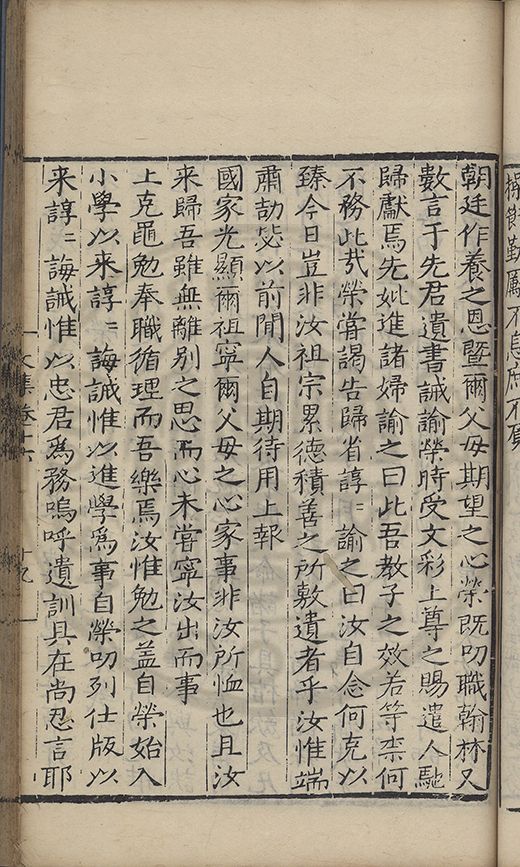 朝廷作養之恩暨爾父母期望之心榮既叨職翰林又
數言于先君遺書誡諭榮時受文彩上尊之賜遣人馳
歸獻焉先妣進諸婦諭之曰此吾教子之效若等柰何
不務此哉榮嘗謁告歸省諄〻諭之曰汝自念何克以
臻今日豈非汝祖宗累德積善之所敷遺者乎汝惟端
肅劼毖以前聞人自期待用上報
國家光顯爾祖寧爾父母之心家事非汝所恤也且汝
來歸吾雖無離別之思而心未嘗寧汝出而事
上克黽勉奉職循理而吾樂焉汝惟勉之蓋自榮始入
小學以來諄〻誨誡惟以進學爲事自榮叨列仕版以
来諄〻誨誡惟以忠君爲務嗚呼遺訓具在尚忍言耶
文集卷十六
十九